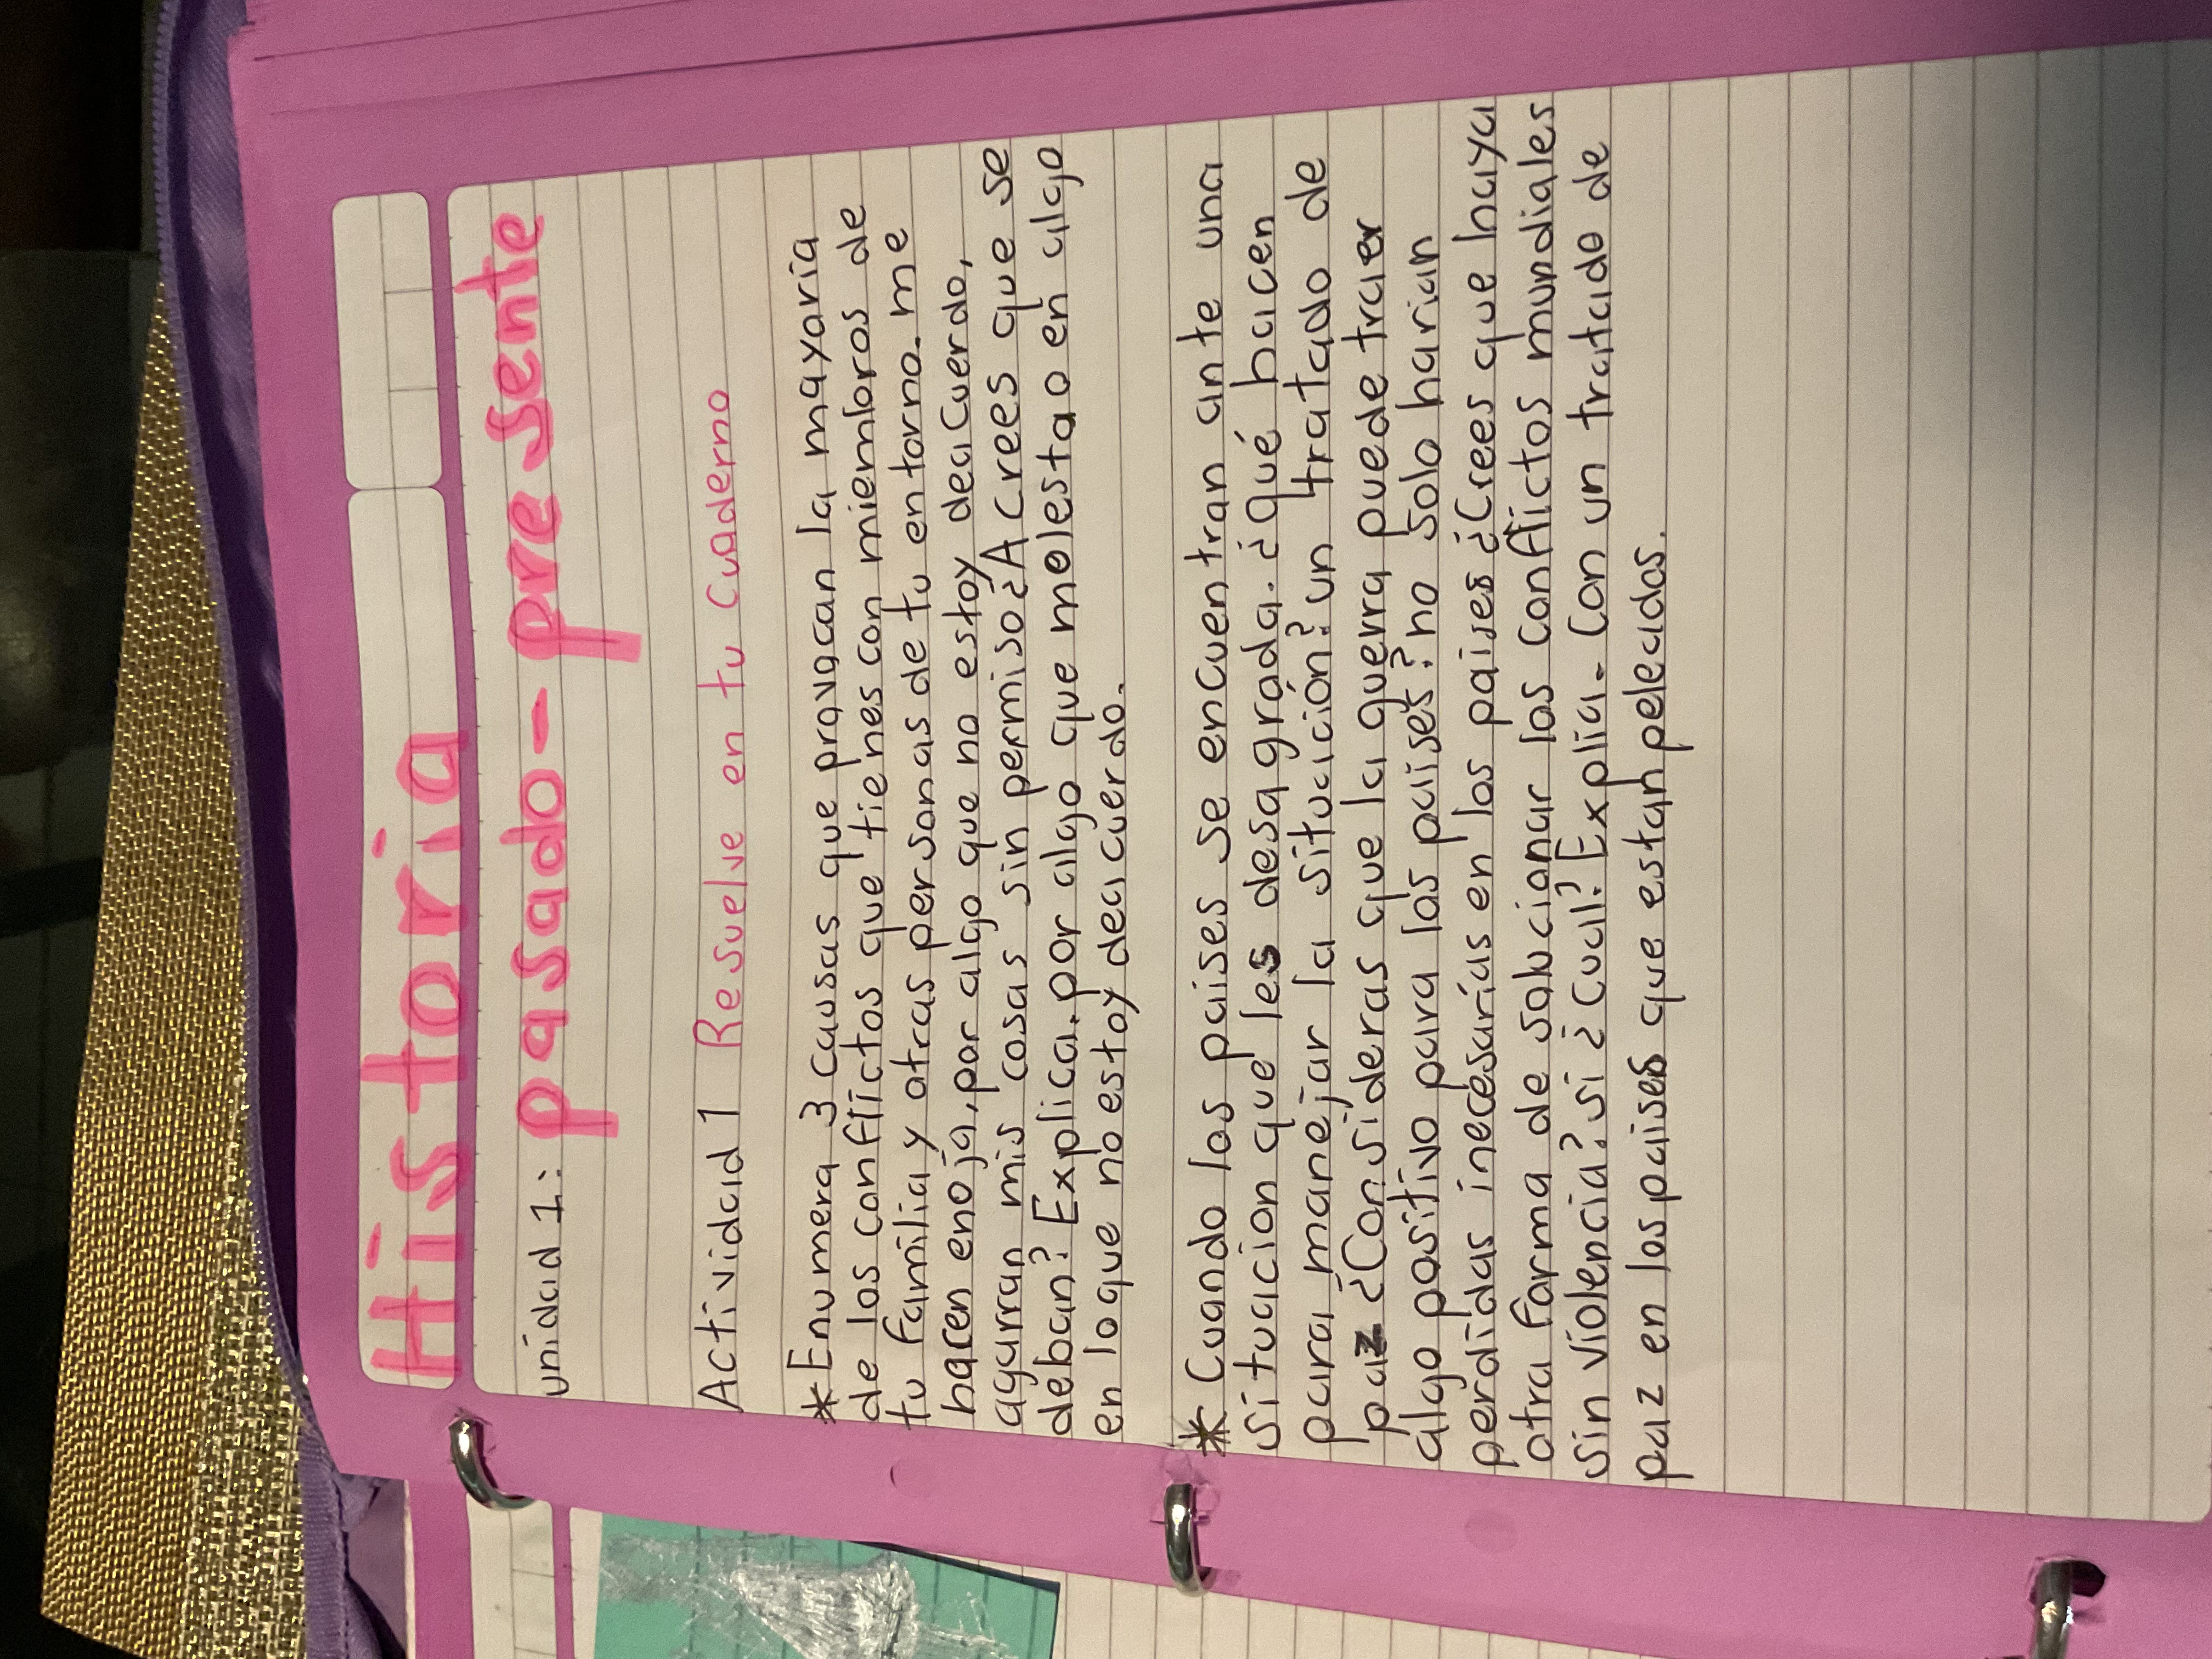 Historia
unidad 1: pasado - presente
Actividad 1 Resuelve en tu cuaderno
* Enumera 3 causas que provocan la mayoria
de los conflictos que tienes con miembros de
tu familia y otras personas de tu entorno. me
hacen enoja, por algo que no estoy deacuerdo,
agarran mis cosas sin permiso ¿A crees que se
deban? Explica. por algo que molesta o en algo
en lo que no estoy deacuerdo.
* Cuando los paises se encuentran ante una
situacion que les desagrada. ¿qué hacen
para manejar la situación? un tratado de
paz ¿Consideras que la guerra puede traer
algo positivo para los paises? no solo harian
perdidas inecesarias en los paises ¿Crees que haya
otra forma de solucionar los conflictos mundiales
sin violencia? si ¿Cual? Explia. Con un tratado de
paz en los paises que estan peleados.